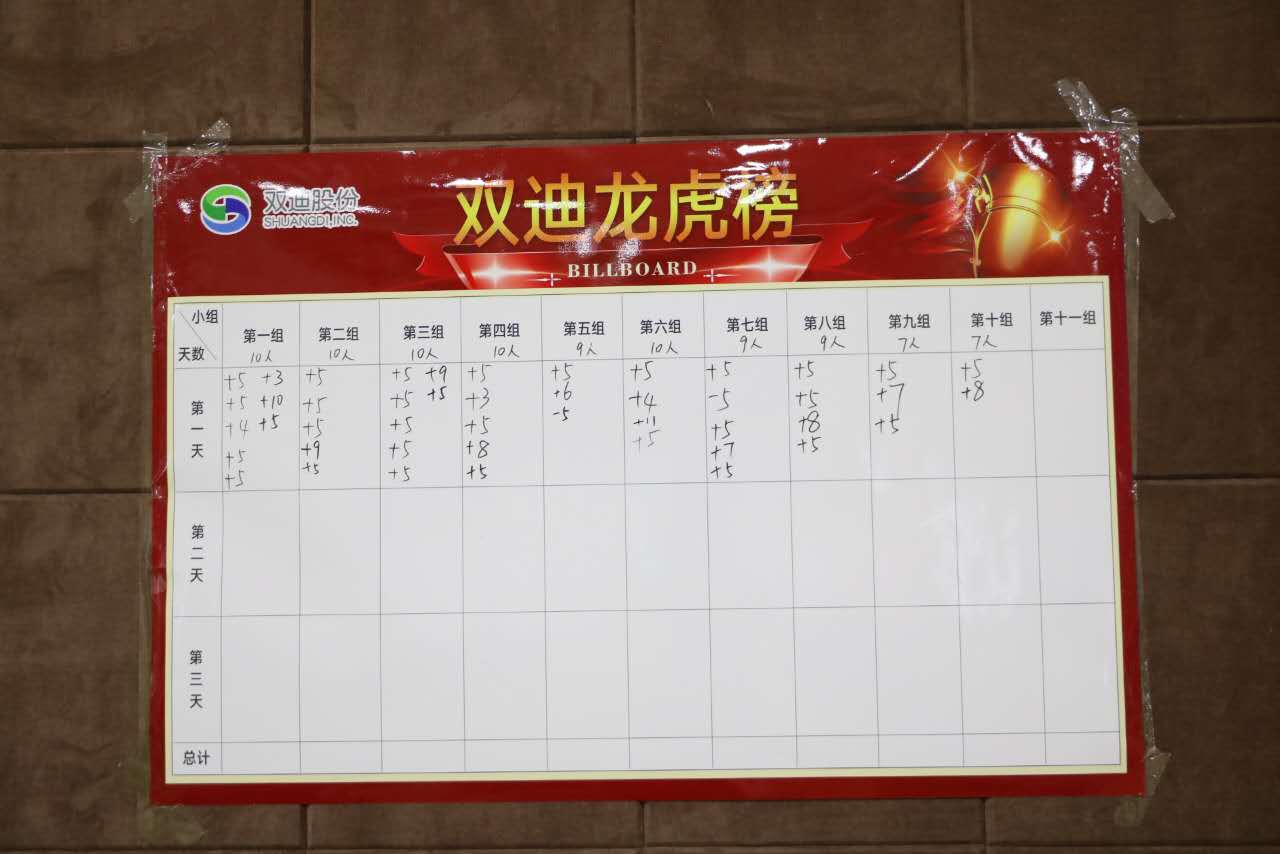 双迪股份
SHUANGDI,INC.
双迪龙虎榜
BILLBOARD
小组 第一组 第二组 第三组 第四组 第五组 第六组 第七组 第八组 第九组 第十组 第十一组
天数 10人 10人 10人 10人 9人 10人 9人 9人 7人 7人
第一天
+5 +3 +5 +5 +9 +5 +5 +5 +5 +5 +5 +5
+5 +10 +5 +5 +5 +3 +6 +4 -5 +5 +7 +8
+4 +5 +5 +5 +5 -5 +11 +5 +8 +5
+5 +9 +5 +8 +5 +7 +5
+5 +5 +5 +5 +5
第二天
第三天
总计